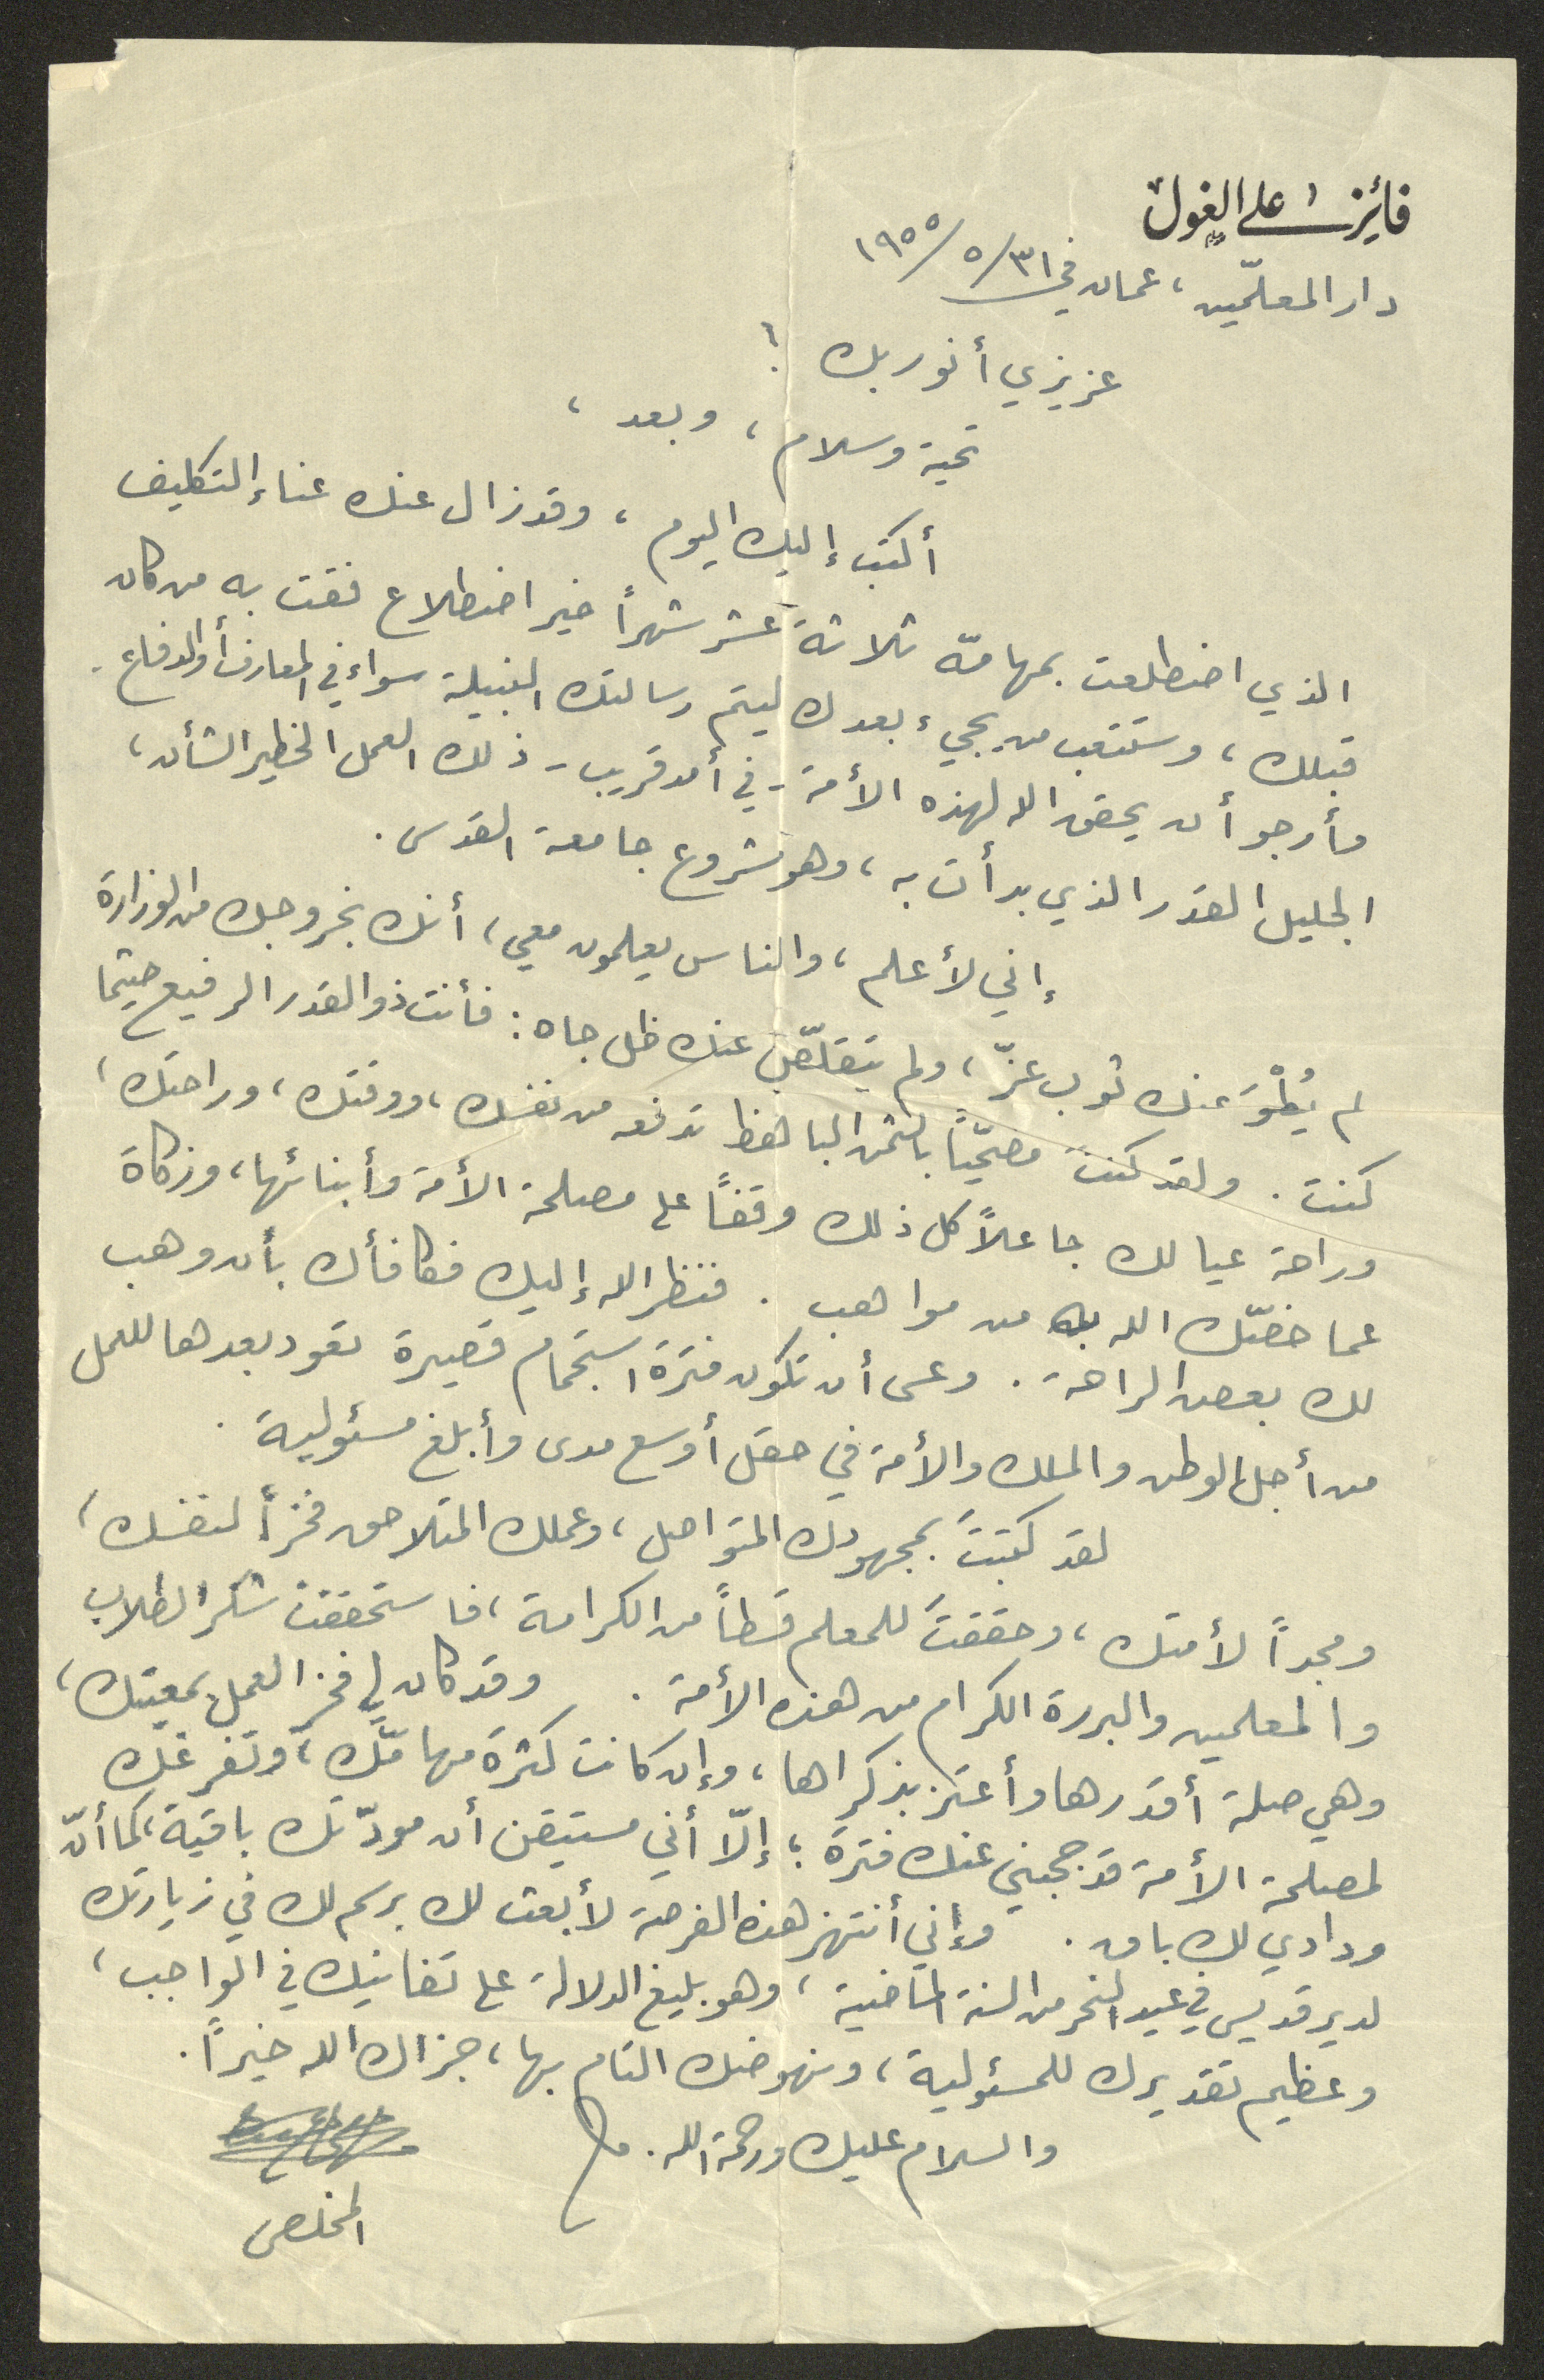 فائز علي الغول
دار المعلّمين، عمان في ٣١/٥/١٩٥٥
عزيزي أنور بك !
تحية وسلام، وبعد،
أكتب إليك اليوم، وقد زال عنك عناء التكليف
الذي اضطلعت بمهامّه ثلاثة عشر شهراً خير اضطلاع فقت به من كان
قبلك، وستتعب من يجيء بعدك ليتم رسالتك النبيلة سواء في المعارف أو الدفاع.
وأرجو أن يحقق الله لهذه الأمة - في أمد قريب - ذلك العمل الخطير الشأن،
الجليل القدر الذي بدأت به، وهو مشروع جامعة القدس.
إني لأعلم، والناس يعلمون معي، أنك بخروجك من الوزارة
لم يُطْوَ عنك ثوب عزّ، ولم يتقلّص عنك ظل جاه: فأنت ذو القدر الرفيع حيثما
كنت. ولقد كنتَ مضحّياً بالثمن الباهظ تدفعه من نفسك، ووقتك، وراحتك،
وراحة عيالك جاعلاً كل ذلك وقفاً على مصلحة الأمة وأبنائها، وزكاة
عما خصّك الله به من مواهب. فنظر الله إليك فكافأك بأن وهب
لك بعض الراحة. وعسى أن تكون فترة استجمام قصيرة تعود بعدها للعمل
من أجل الوطن والملك والأمة في حقل أوسع مدى وأبلغ مسئولية.
لقد كتبتَ بمجهودك المتواصل، وعملك المتلاحق فخراً لنفسك،
ومجداً لأمتك، وحققتَ للمعلم قسطاً من الكرامة، فاستحققت شكر الطلاب
والمعلمين والبررة الكرام من هذه الأمة. وقد كان لي فخر العمل بمعيتك،
وهي صلة أقدرها وأعتز بذكراها، وإن كانت كثرة مهامّك، وتفرغك
لمصلحة الأمة قد حجبني عنك فترة؛ إلّا أني مستيقن أن مودّتك باقية، كما أنّ
ودادي لك باق. وإني أنتهز هذه الفرصة لأبعث لك برسم لك في زيارتك
لدير قديس في عيد النحر من السنة الماضية، وهو بليغ الدلالة على تفانيك في الواجب،
وعظيم تقديرك للمسئولية، ونهوضك التام بها، جزاك الله خيراً.
والسلام عليك ورحمة الله.
المخلص